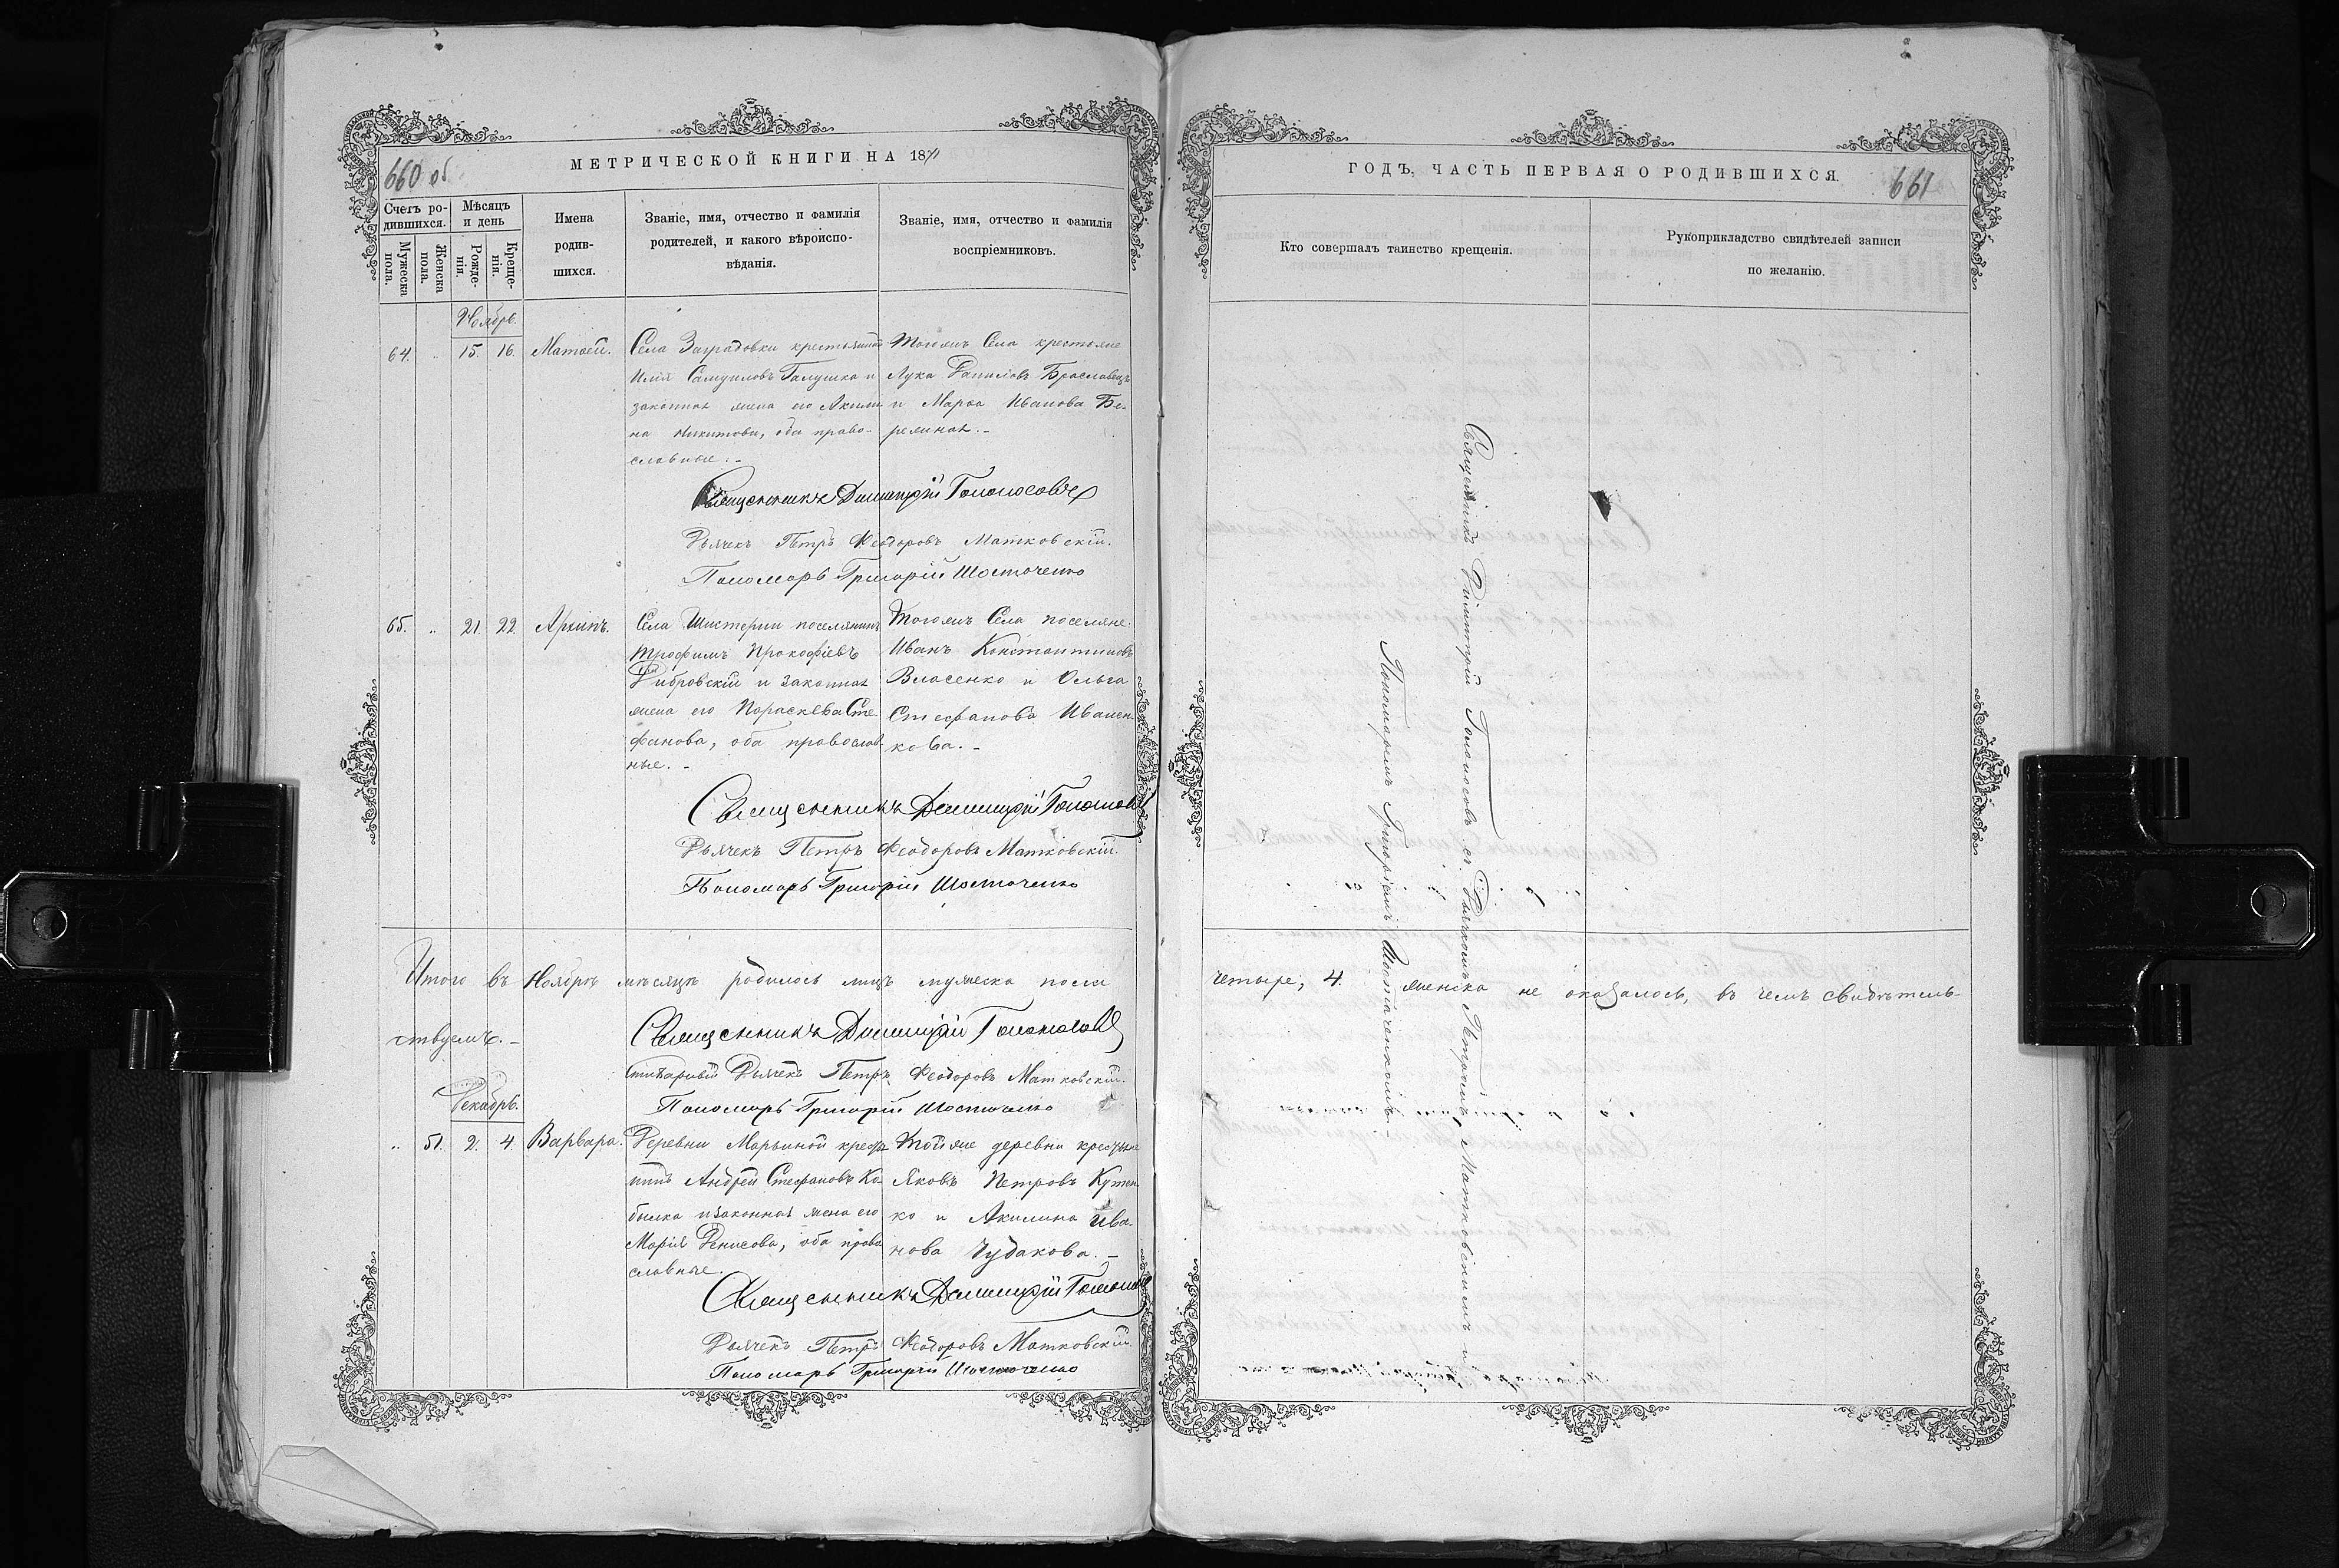 МЕТРИЧЕСКОЙ КНИГИ НА 1871
660 об
Счетъ ро-
дившихся.
Мѣсяцъ
и день
Мужеска
пола.
Женска
пола.
Рожде-
нія.
Креще-
нія.
Имена
родив-
шихся.
Званіе, имя, отчество и фамилія
родителей, и какого вѣроиспо-
вѣданія.
Званіе, имя, отчество и фамилія
воспріемниковъ.
Ноябрь.
64. „ 15. 16. Матѳей.
Села Заградовки крестьянинъ
Илія Самуиловъ Галушка и
законная жена его Акили
на Никитова, оба право-
славные. –
Тогожъ Села крестьяне
Лука Даниловъ Браславецъ
и Марѳа Иванова Бе-
режная. –
Священникъ Димитрій Голоносовъ
Дьячекъ Петръ Ѳеодоровъ Матковскій.
Пономарь Григорій Шостаченко
65. „ 21. 22. Архипъ.
Села Шестерни поселянинъ
Трофимъ Прокофіевъ
Дибровскій и законная
жена его Параскева Сте
фанова, оба православ
ные. –
Тогожъ Села поселяне:
Иванъ Константиновъ
Власенко и Ольга
Стефанова Ивамен
кова. –
Священникъ Димитрій Голоносовъ
Дьячекъ Петръ Ѳеодоровъ Матковскій.
Пономарь Григорій Шостаченко
Итого въ Ноябрѣ мѣсяцѣ родилось лицъ мужеска пола
ствуемъ. –
Священникъ Димитрій Голоносовъ
Стихарный Дьячекъ Петръ Ѳеодоровъ Матковскій.
Пономарь Григорій Шостаченко
Декабрь.
„ 51. 2. 4. Варвара.
Деревни Марьиной крестья
нинъ Андрей Стефановъ Ко
былка и законная жена его
Марія Денисова, оба право
славные.
Тойже деревни крестьяне
Яковъ Петровъ Кутен
ко и Акилина Ива-
нова Чудакова. –
Священникъ Димитрій Голоносовъ
Дьячекъ Петръ Ѳеодоровъ Матковскій
Пономарь Григорій Шостаченко
ГОДЪ, ЧАСТЬ ПЕРВАЯ О РОДИВШИХСЯ.
661
Кто совершалъ таинство крещенія.
Рукоприкладство свидѣтелей записи
по желанію.
Священникъ Димитрій Голоносовъ съ Дьячкомъ Петромъ Матковскимъ и
Пономаремъ Григоріемъ Шостаченкомъ –
четыре, 4. женска не оказалось, въ чемъ свидѣтель-